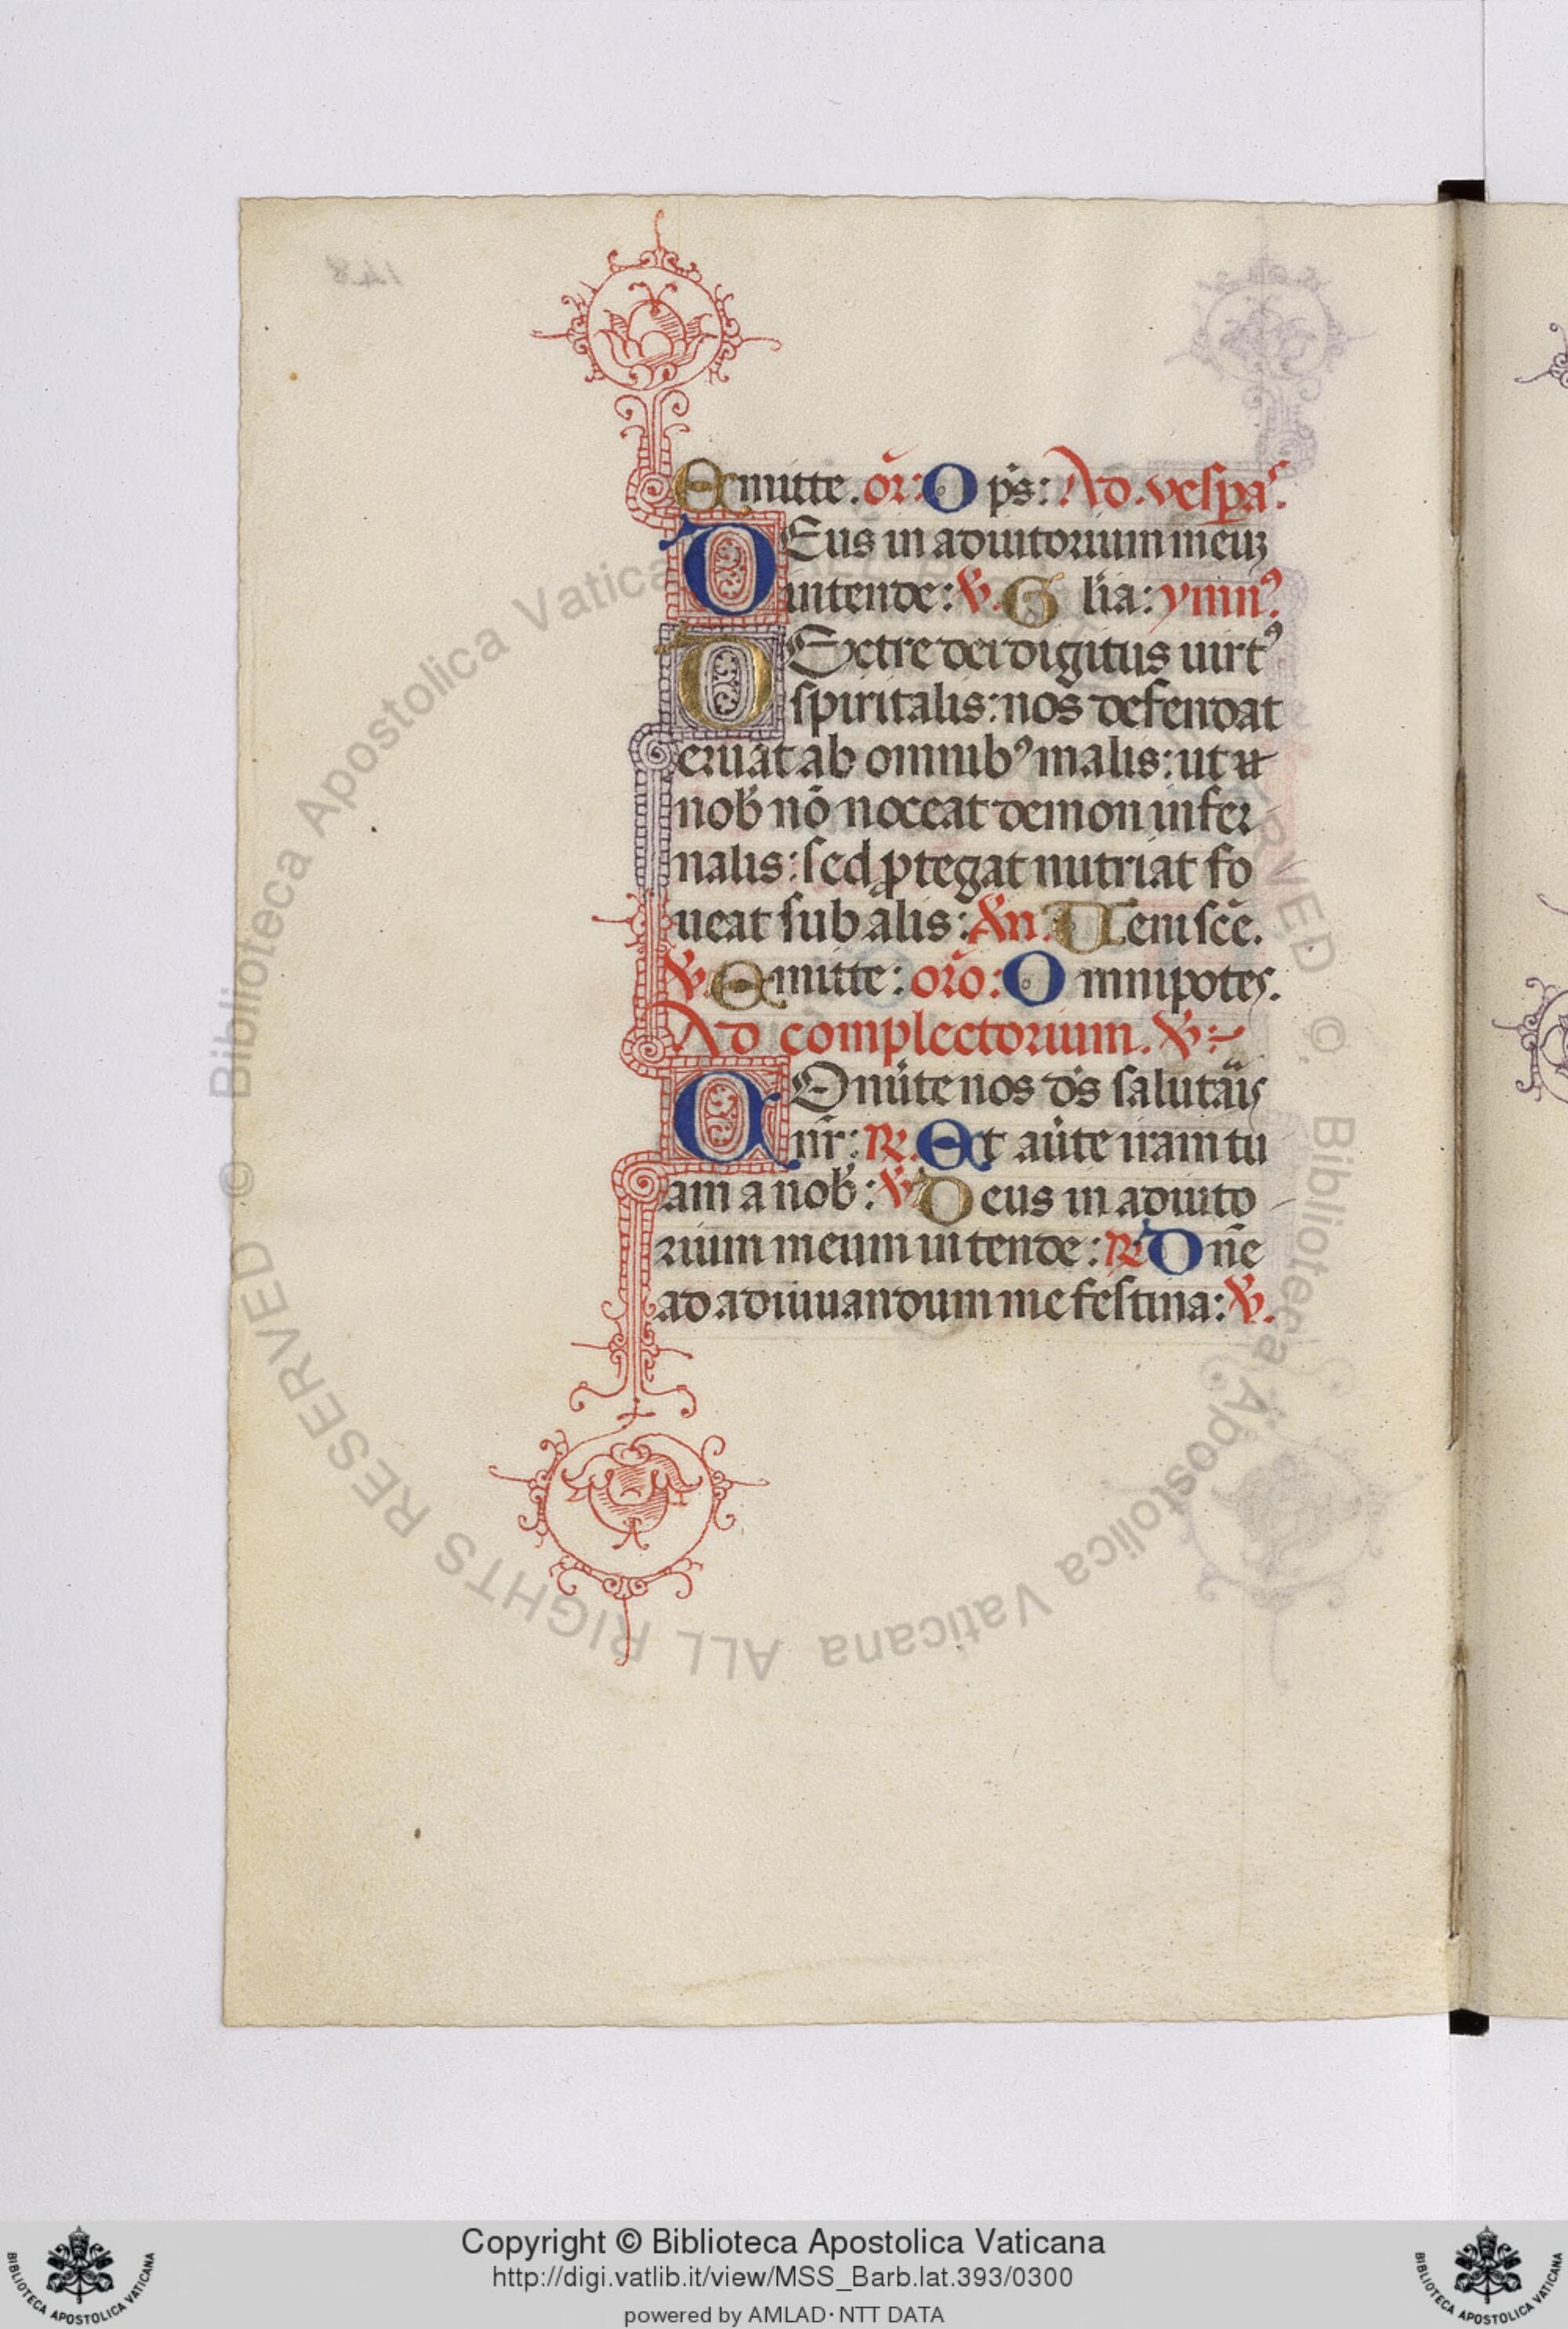 Emitte. or̄: O p̄s: Ad. vesp̄aꝰ.
DEus in adiutorium meuꝫ
intende: ℣. G lia: ymnꝰ.
DExtre dei digitus uirtꝰ
spiritalis: nos defendat
eruat ab omnibꝰ malis: ut ū
nob̄ nō noceat demon infer
nalis: sed ꝓtegat nutriat fo
ueat sub alis: An. Ueni scē.
℣. Emitte: oro: Omnipotēs.
Ad complectorium. ℣:
COnūte nos d̄s salutāis
nr̄: ℟. Et aūte iram tu
am a nob̄: ℣. Deus in adiuto
rium meum intende: ℟. Dn̄e
ad adiuuandum me festina: ℣.
148
© Biblioteca Apostolica Vaticana ALL RIGHTS RESERVED
Copyright © Biblioteca Apostolica Vaticana
http://digi.vatlib.it/view/MSS_Barb.lat.393/0300
powered by AMLAD·NTT DATA
BIBLIOTECA APOSTOLICA VATICANA
BIBLIOTECA APOSTOLICA VATICANA